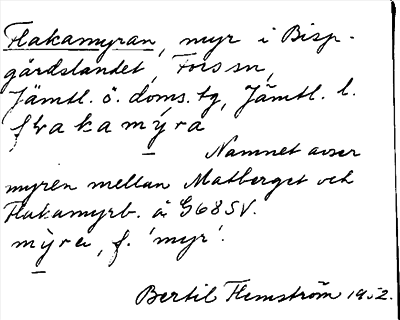 Flakamyran, myr i Bisp-
gårdslandet, Fors sn,
Jämtl. ö. doms. tg, Jämtl. l.
flakamy̆ra
Namnet avser
myren mellan Matberget och
Flakamyrb. å G68SV.
my̆ra, f. 'myr'.
Bertil Flemström 1952.